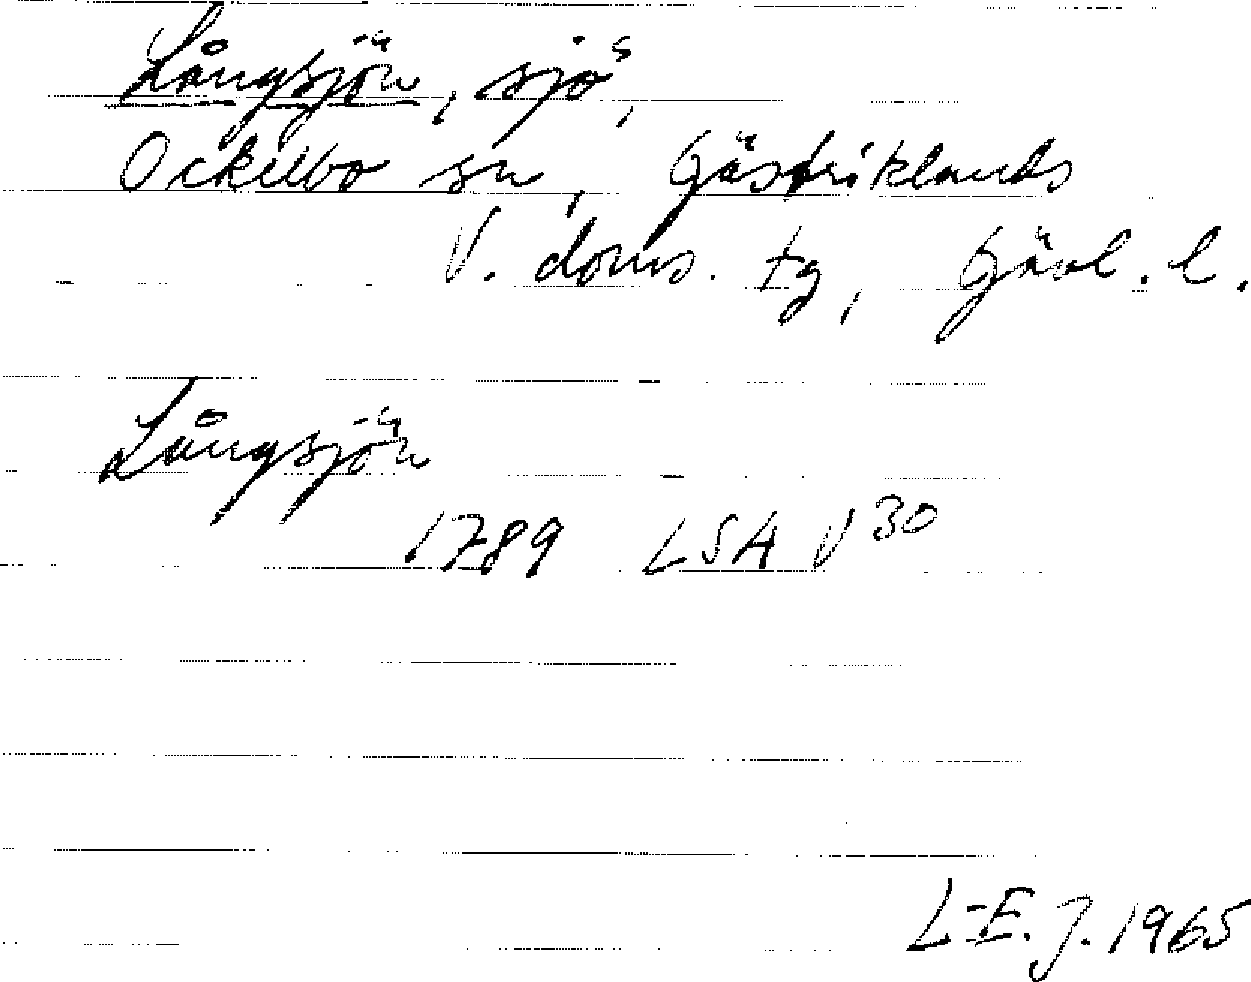 Långsjön, sjö,
Ockelbo sn, Gästriklands
V. doms. tg, Gävl. l.
Långsjön
1789 LSA V 30
L-E. J. 1965